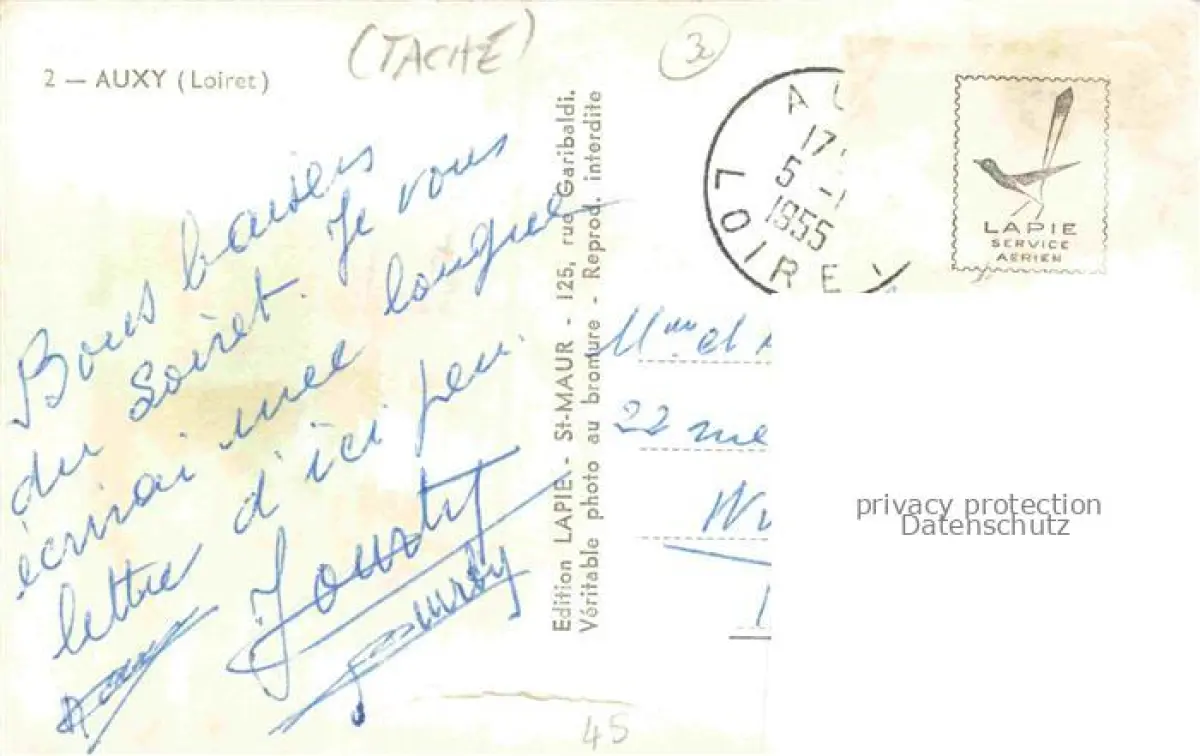 (TACHÉ)
2 — AUXY (Loiret)
Bons baisers
du Loiret. Je vous
écrirai une longue
lettre d'ici peu.
Edition LAPIE - St-MAUR - 125, rue Garibaldi.
Véritable photo au bromure - Reprod. interdite
AU
17
5 -
1955
LOIRET
LAPIE
SERVICE
AERIEN
Mme et
22
privacy protection
Datenschutz
45